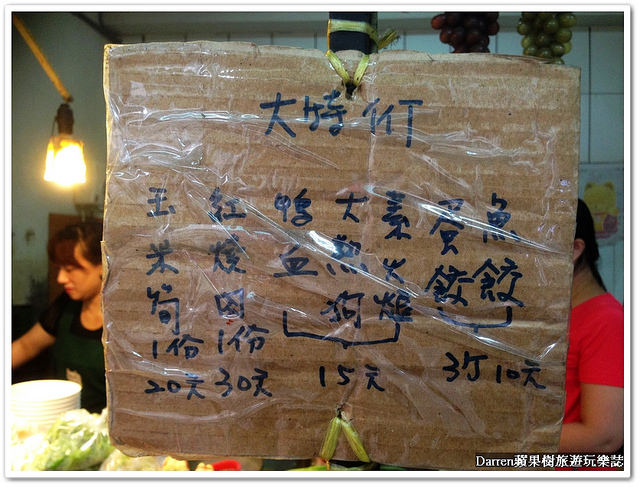 大特价
玉米筍1份20元
紅燒肉1份30元
鴨血
大熱狗
素火腿
15元
蛋餃
魚餃
3ケ10元
Darren蘋果樹旅遊玩樂誌